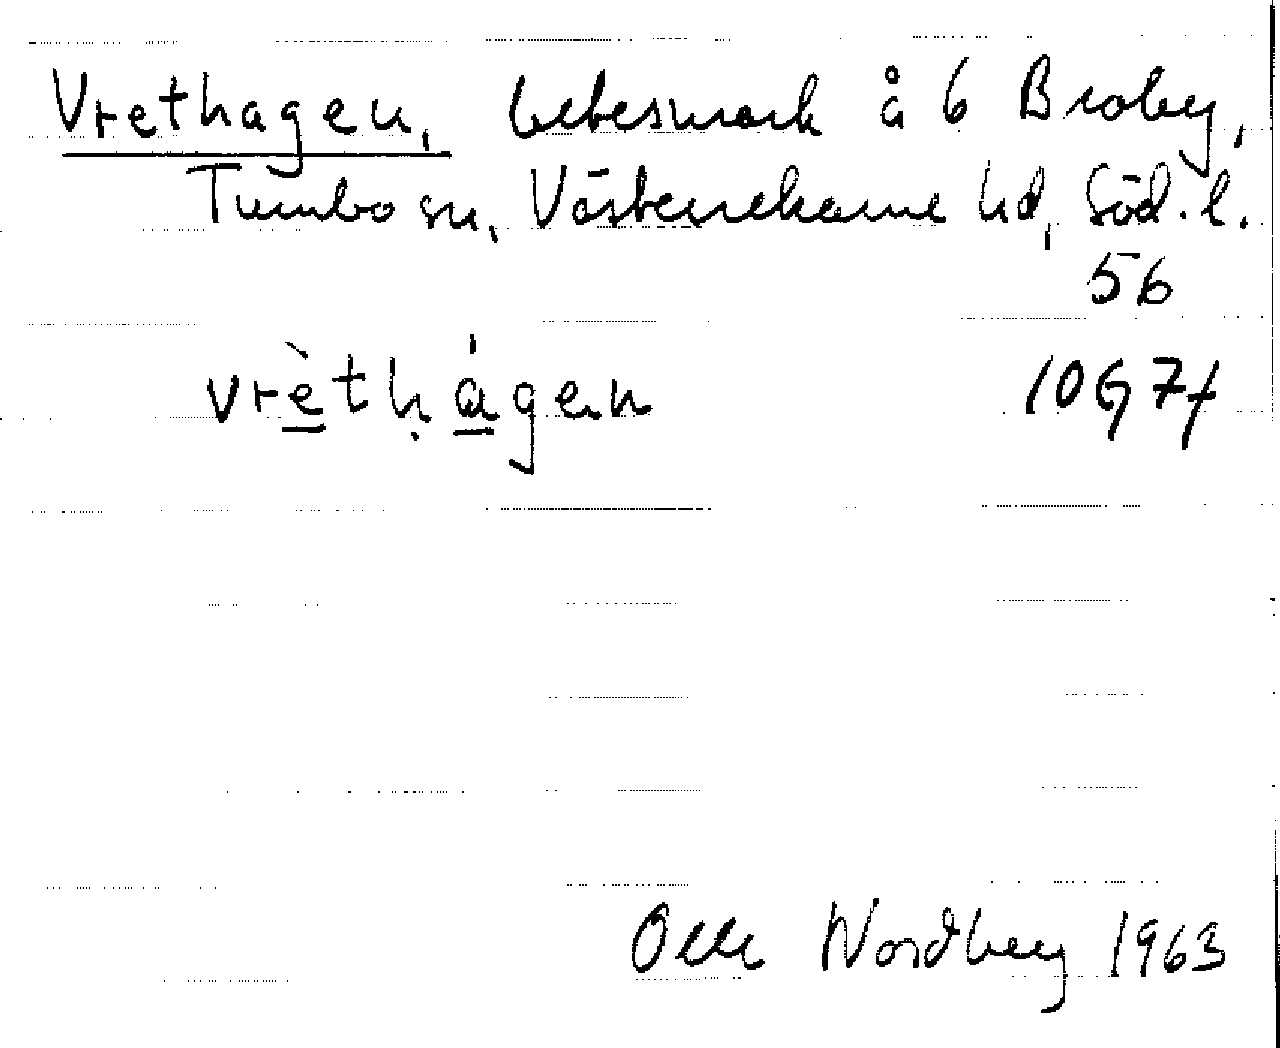 Vrethagen, betesmark å 6 Broby,
Tumbo sn, Västerrekarne hd, Söd. l.
56
vrèthágen
10G7f
Olle Nordberg 1963